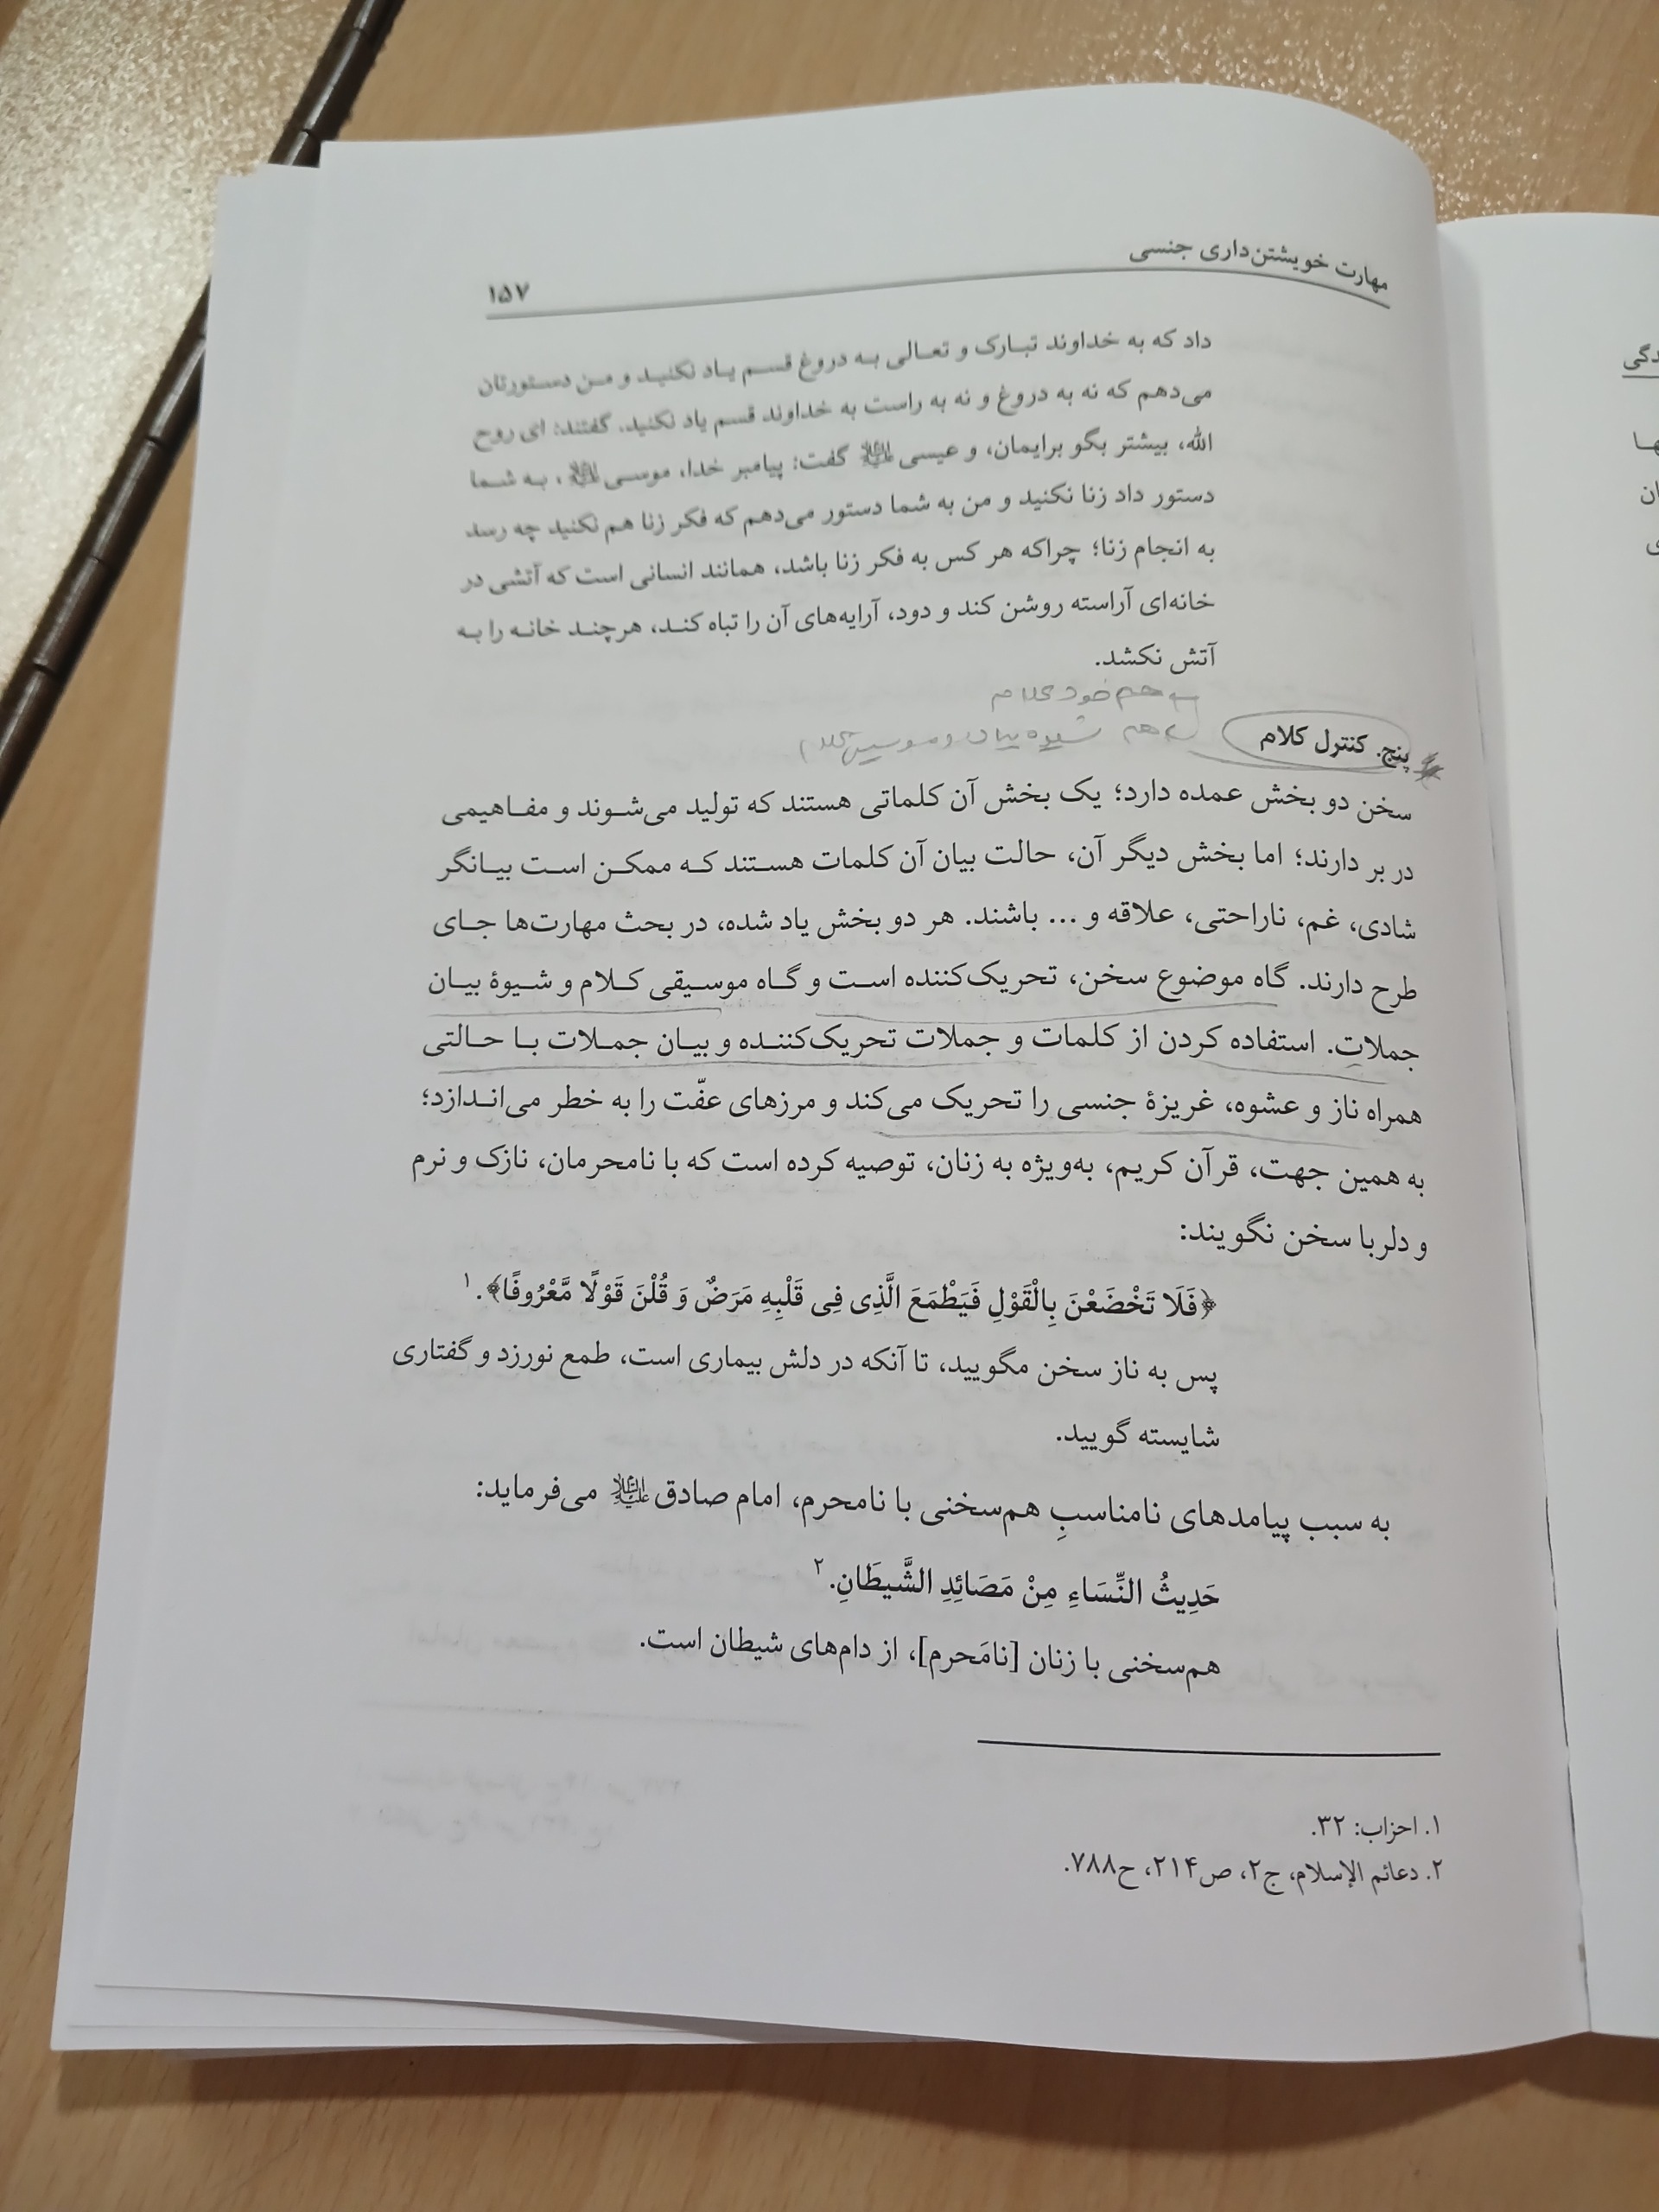 مهارت خویشتن‌داری جنسی
۱۵۷
داد که به خداوند تبارک و تعالی به دروغ قسم یاد نکنید و من دستورتان
می‌دهم که نه به دروغ و نه به راست به خداوند قسم یاد نکنید. گفتند: ای روح
الله، بیشتر بگو برایمان، و عیسی علیه‌السلام گفت: پیامبر خدا، موسی علیه‌السلام، به شما
دستور داد زنا نکنید و من به شما دستور می‌دهم که فکر زنا هم نکنید چه رسد
به انجام زنا؛ چراکه هر کس به فکر زنا باشد، همانند انسانی است که آتشی در
خانه‌ای آراسته روشن کند و دود، آرایه‌های آن را تباه کند، هرچند خانه را به
آتش نکشد.
هم خود کلام
پنج. کنترل کلام
هم شیوه بیان و موسیقی کلام
سخن دو بخش عمده دارد؛ یک بخش آن کلماتی هستند که تولید می‌شوند و مفاهیمی
در بر دارند؛ اما بخش دیگر آن، حالت بیان آن کلمات هستند که ممکن است بیانگر
شادی، غم، ناراحتی، علاقه و ... باشند. هر دو بخش یاد شده، در بحث مهارت‌ها جای
طرح دارند. گاه موضوع سخن، تحریک‌کننده است و گاه موسیقی کلام و شیوۀ بیان
جملات. استفاده کردن از کلمات و جملات تحریک‌کننده و بیان جملات با حالتی
همراه ناز و عشوه، غریزۀ جنسی را تحریک می‌کند و مرزهای عفّت را به خطر می‌اندازد؛
به همین جهت، قرآن کریم، به‌ویژه به زنان، توصیه کرده است که با نامحرمان، نازک و نرم
و دلربا سخن نگویند:
﴿فَلَا تَخْضَعْنَ بِالْقَوْلِ فَيَطْمَعَ الَّذِى فِى قَلْبِهِ مَرَضٌ وَ قُلْنَ قَوْلًا مَّعْرُوفًا﴾.۱
پس به ناز سخن مگویید، تا آنکه در دلش بیماری است، طمع نورزد و گفتاری
شایسته گویید.
به سبب پیامدهای نامناسبِ هم‌سخنی با نامحرم، امام صادق علیه‌السلام می‌فرماید:
حَدِيثُ النِّسَاءِ مِنْ مَصَائِدِ الشَّيطَانِ.۲
هم‌سخنی با زنان [نامَحرم]، از دام‌های شیطان است.
۱. احزاب: ۳۲.
۲. دعائم الإسلام، ج۲، ص۲۱۴، ح۷۸۸.